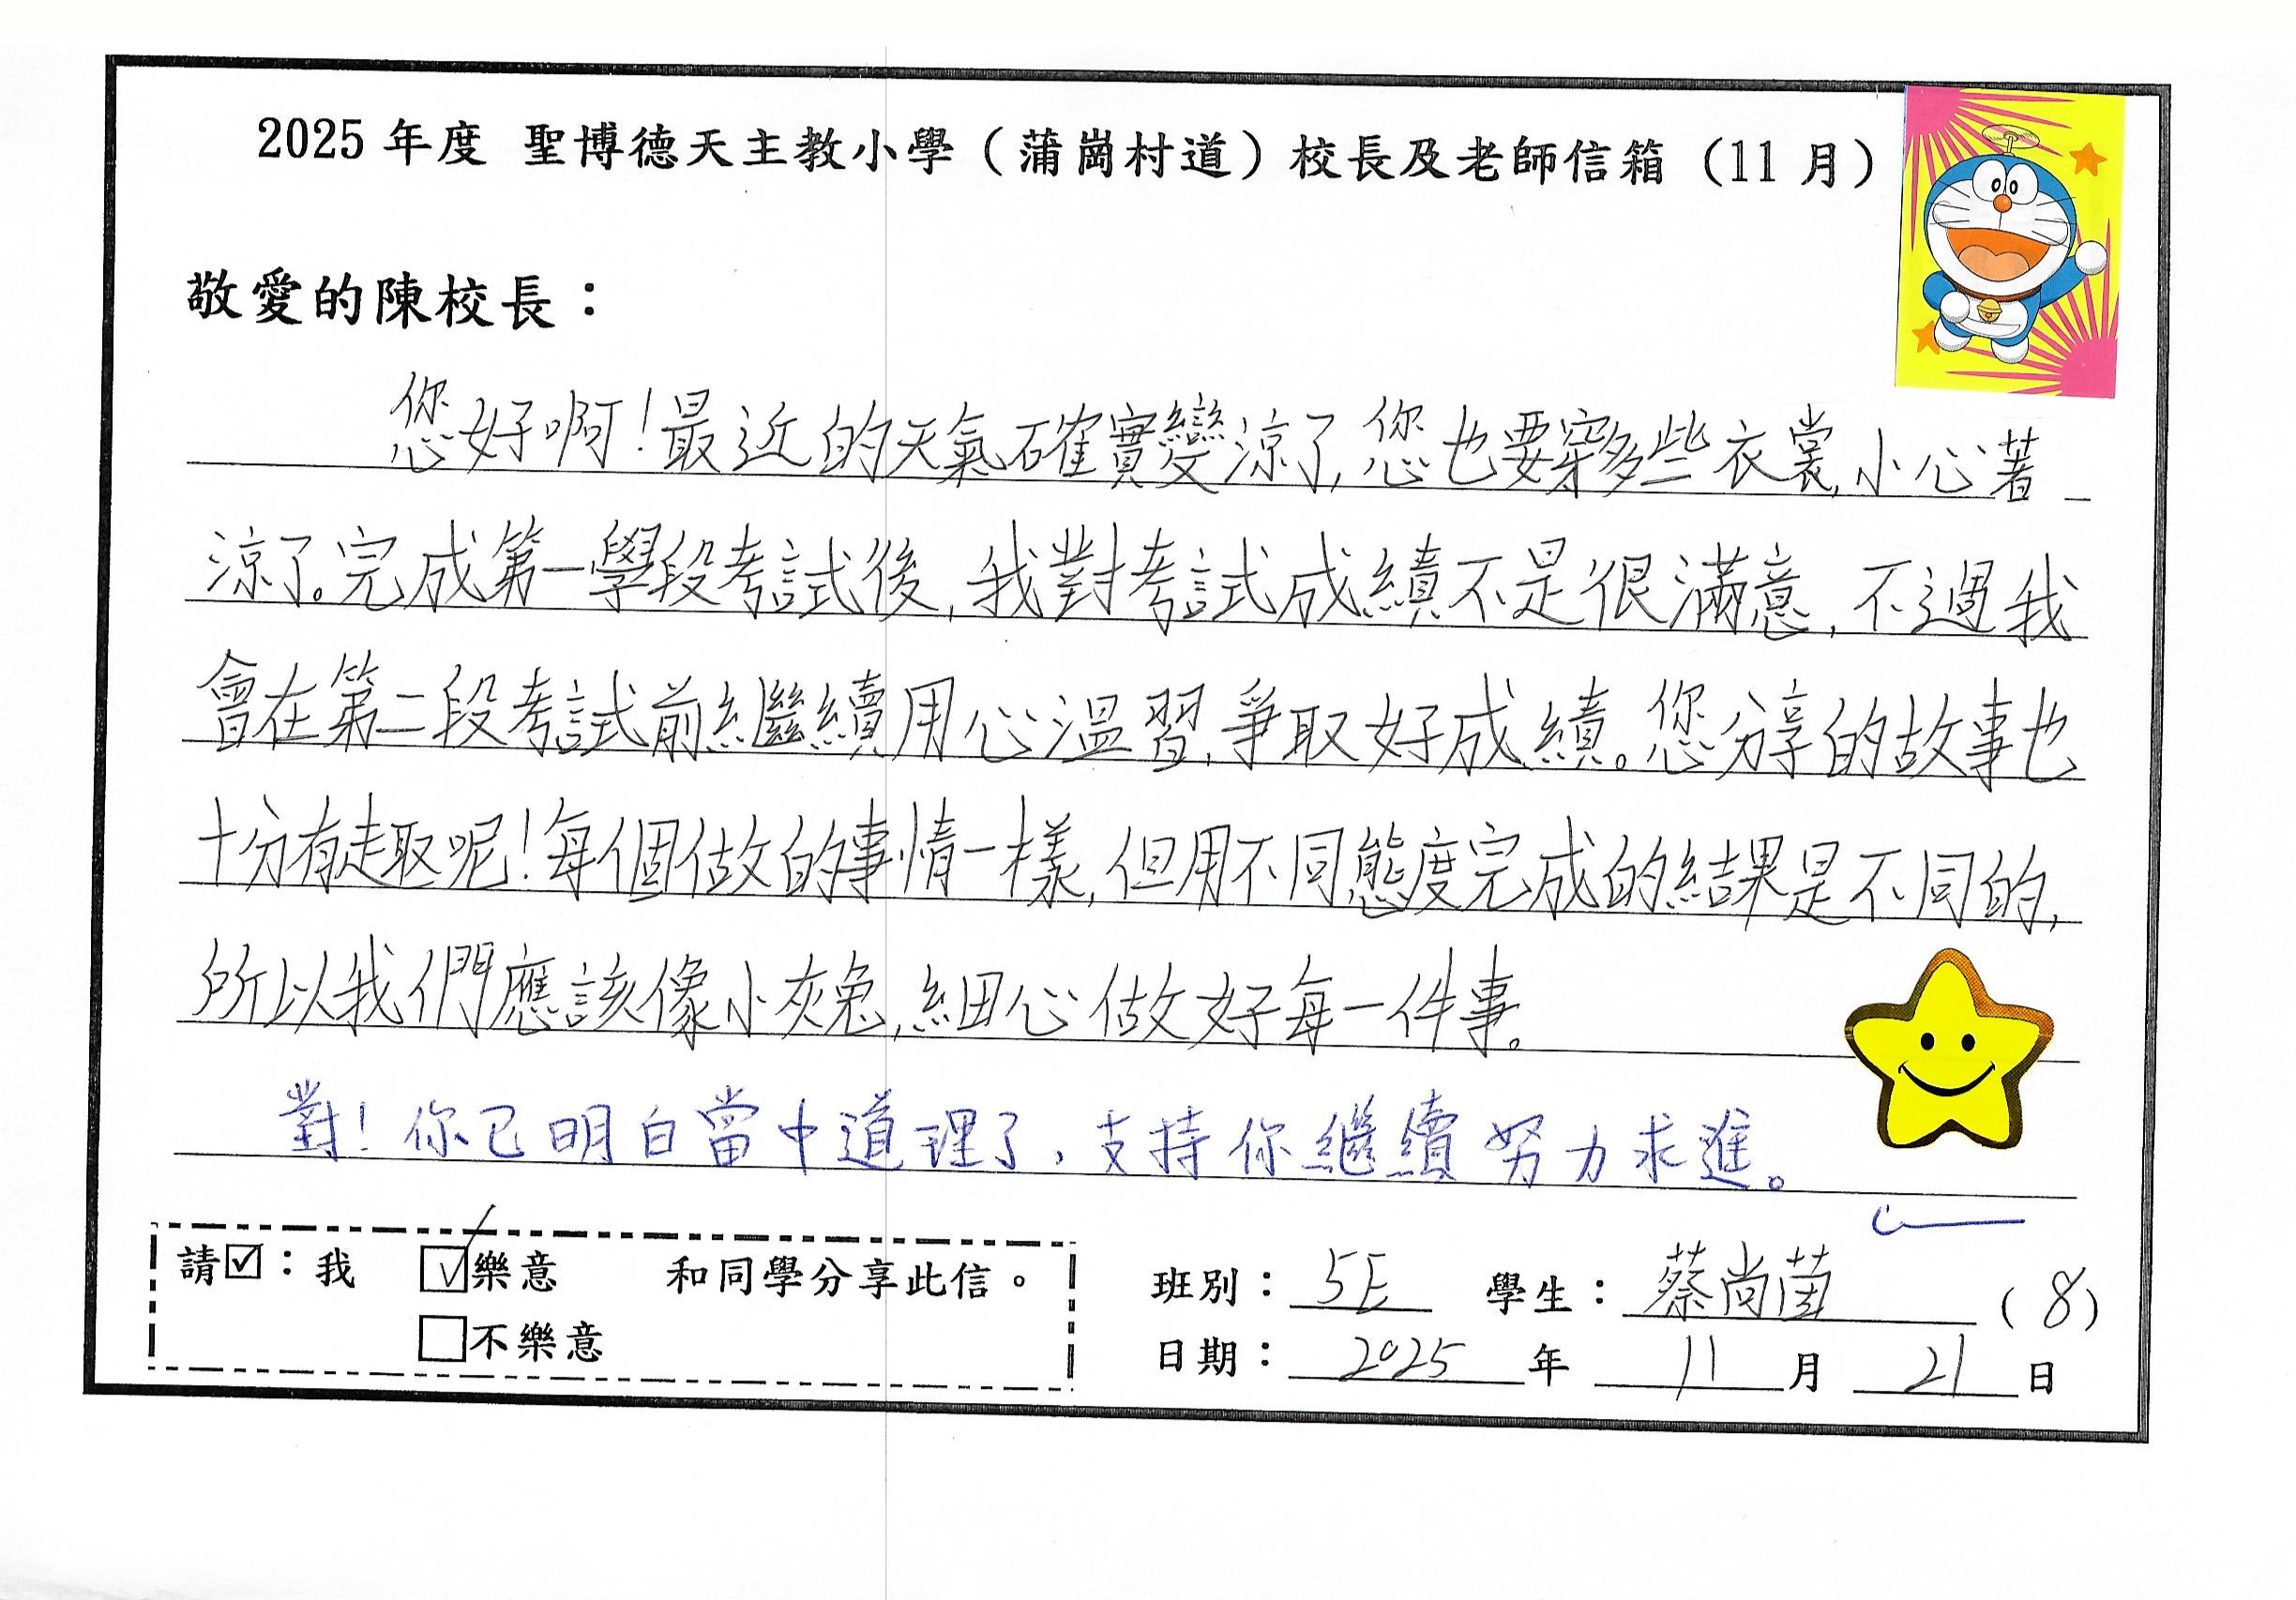 2025 年度 聖博德天主教小學（蒲崗村道）校長及老師信箱（11 月）
敬愛的陳校長：
您好啊！最近的天氣確實變涼了,您也要穿多些衣裳,小心著
涼了。完成第一學段考試後,我對考試成績不是很滿意,不過我
會在第二段考試前繼續用心溫習,爭取好成績。您分享的故事也
十分有趣呢！每個做的事情一樣,但用不同態度完成的結果是不同的,
所以我們應該像小灰兔,細心做好每一件事。
對！你已明白當中道理了，支持你繼續努力求進。
請☑：我 ☑樂意 和同學分享此信。
□不樂意
班別：5E 學生：蔡尚茵（8）
日期：2025 年 11 月 21 日